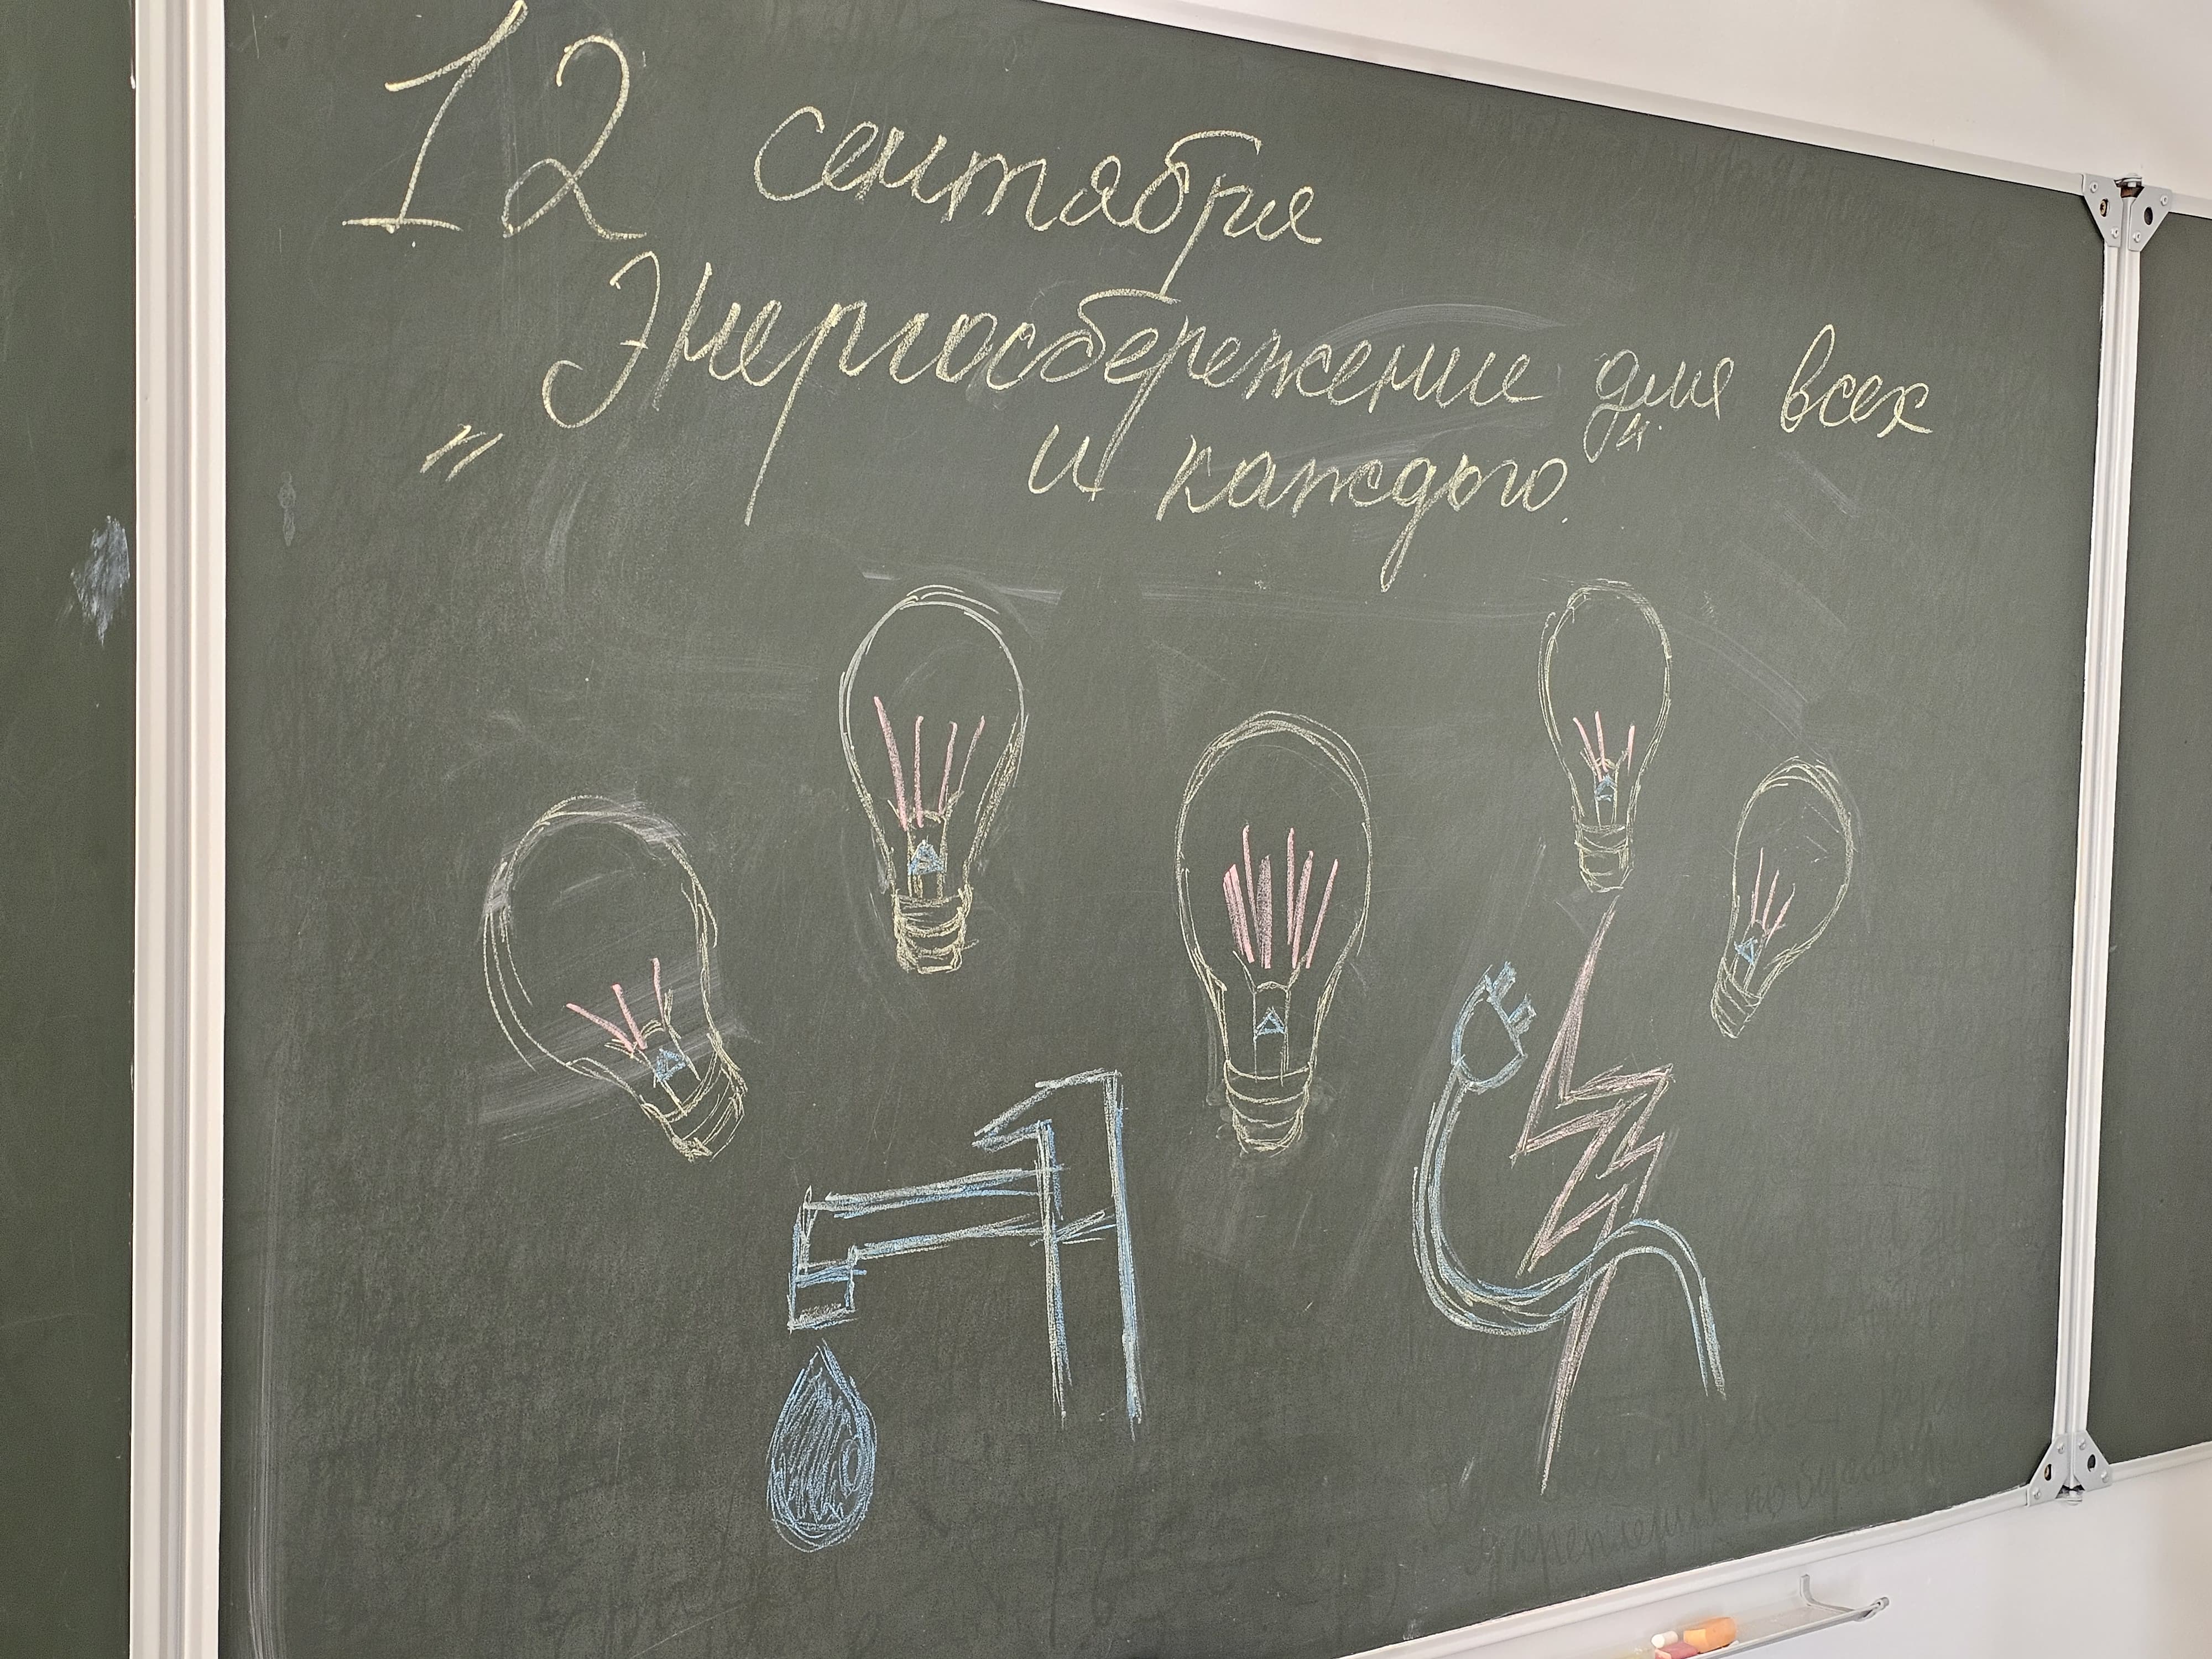 12 сентября
„Энергосбережение для всех
и каждого"